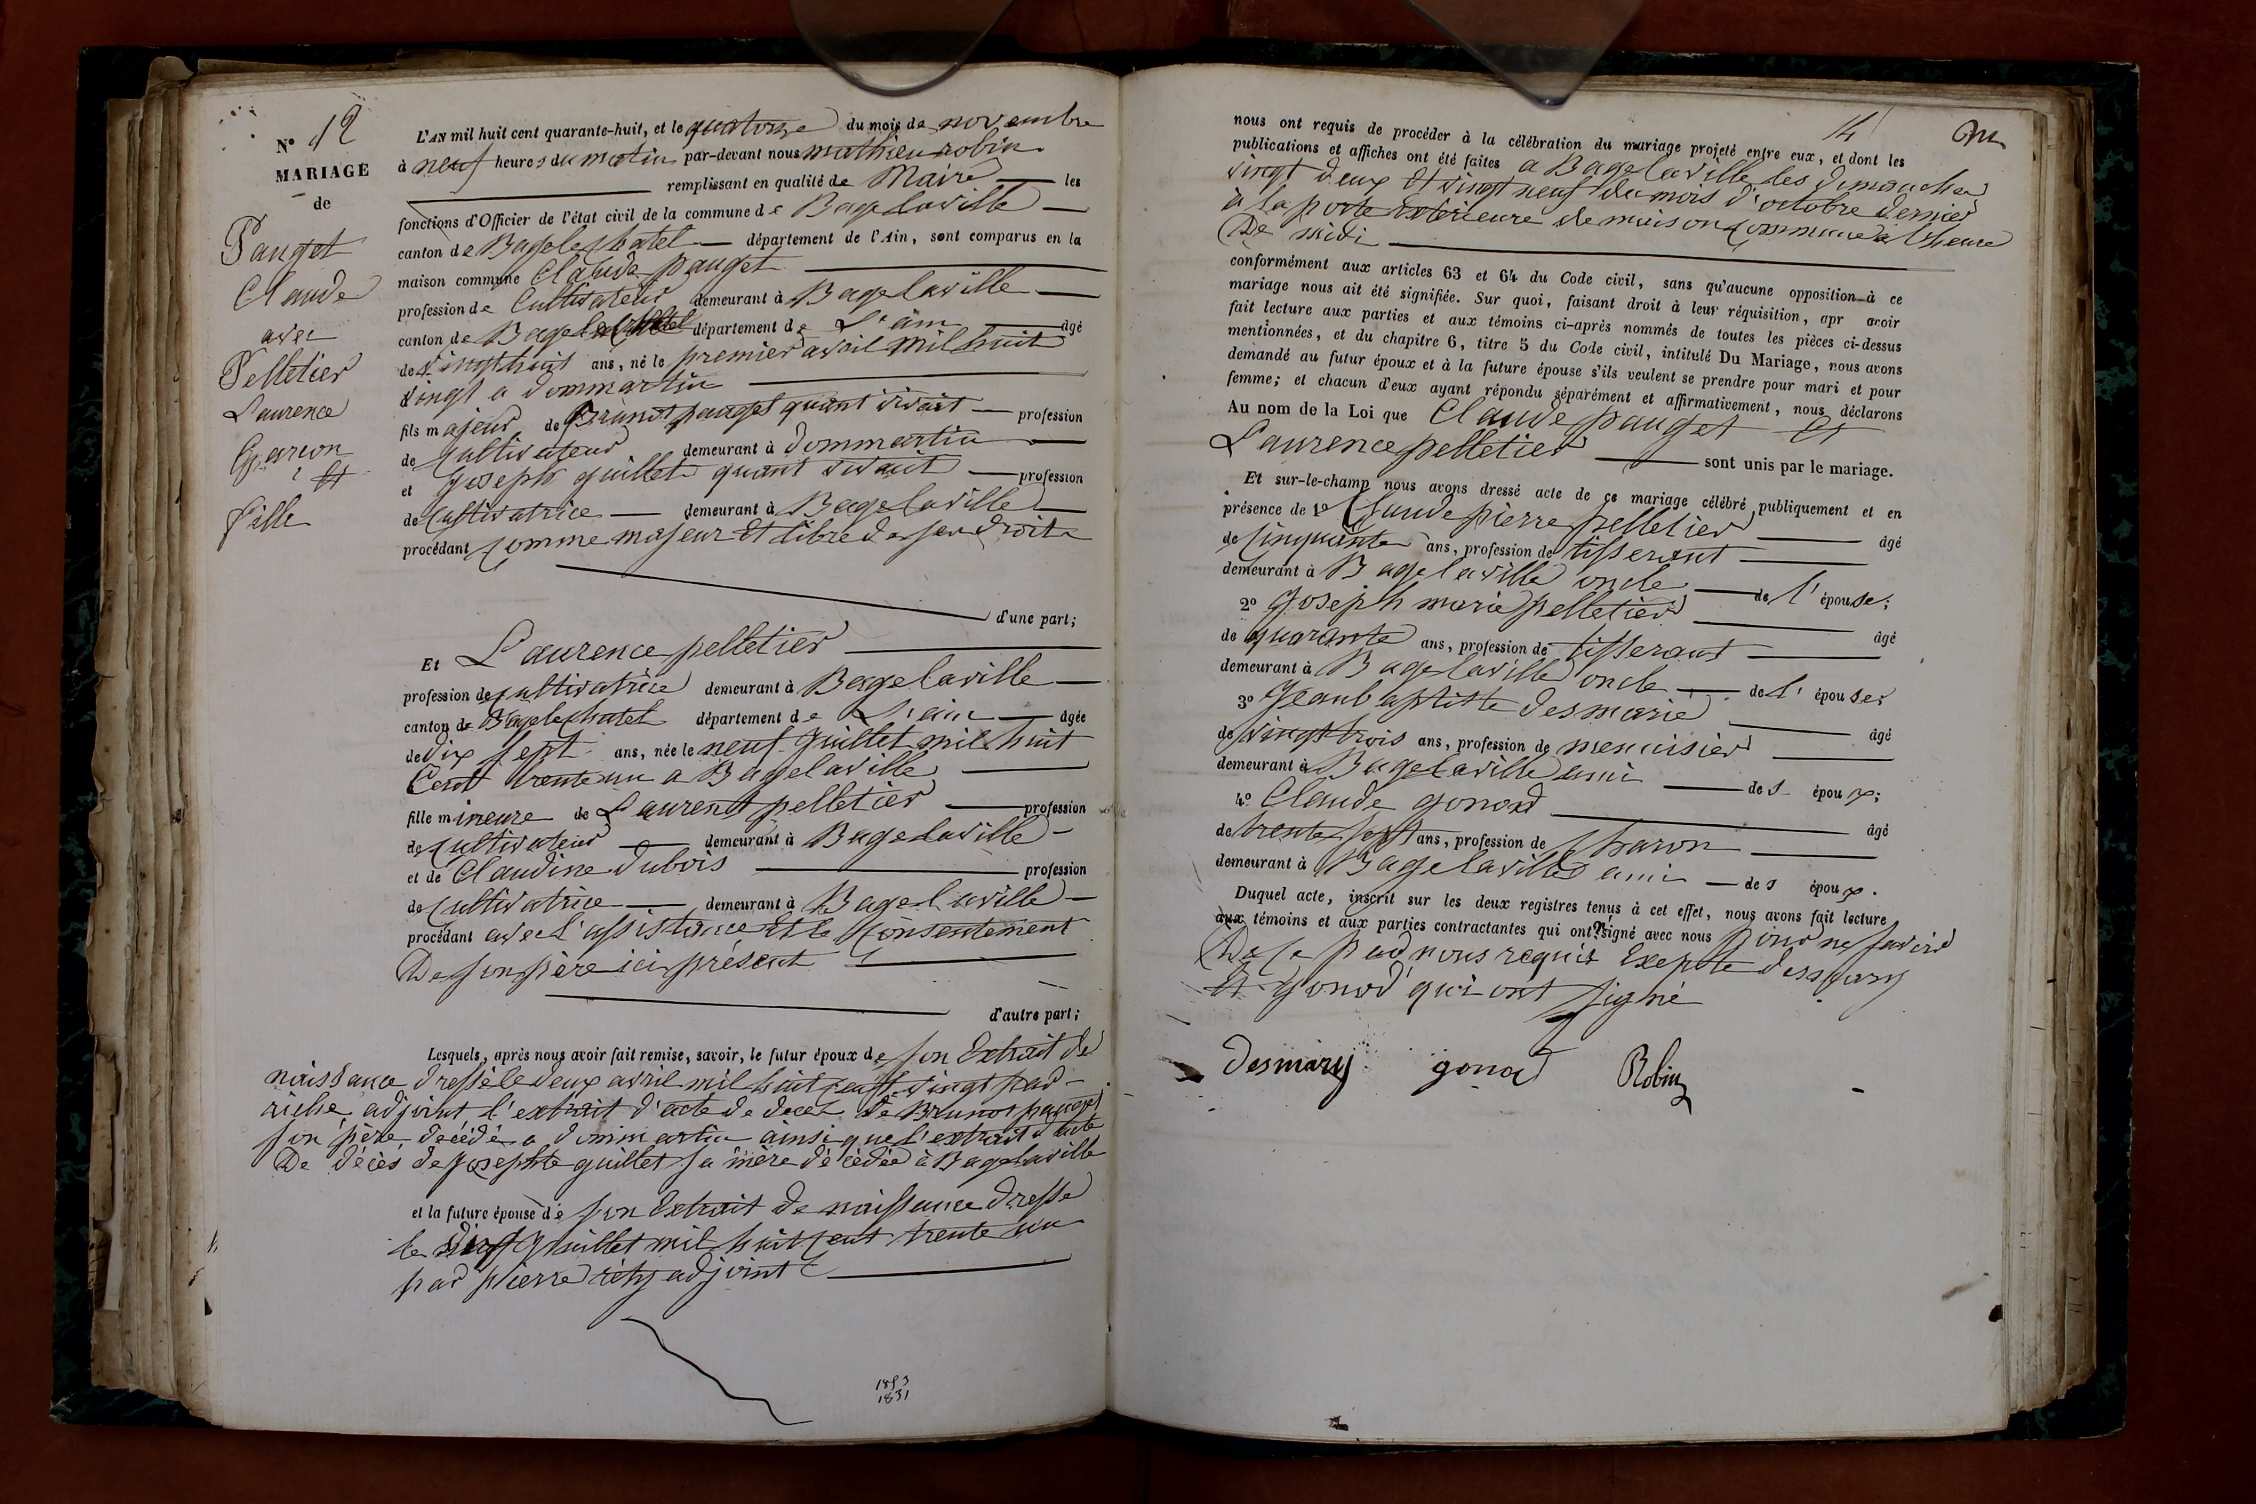 N° 12
MARIAGE
de
Pauget
Claude
avec
Pelletier
Laurence
Garcon
et
fille
L'AN mil huit cent quarante-huit, et le quatorze du mois de novembre
à neuf heures du matin par-devant nous mathieu robin
remplissant en qualité de Maire les
fonctions d'Officier de l'état civil de la commune de Bagelaville
canton de Bagelechatel département de l'Ain, sont comparus en la
maison commune Claude pauget
profession de Cultivateur demeurant à Bagelaville
canton de Bagelechatel département de L'ain âgé
de vingthuit ans, né le premier avril mil huit
vingt a dommartin
fils majeur de Brunot pauget quant vivait profession
de cultivateur demeurant à dommartin
et Joseph guillet quant vivait profession
de cultivatrice demeurant à Bagelaville
procédant comme majeur et libre de ses droits
d'une part;
Et Laurence pelletier
profession de cultivatrice demeurant à Bagelaville
canton de Bagelechatel département de L'ain âgée
de dix sept ans, née le neuf juillet mil huit
Cent trente un a Bagelaville
fille mineure de Laurent pelletier profession
de cultivateur demeurant à Bagelaville
et de Claudine dubois profession
de cultivatrice demeurant à Bagelaville
procédant avec l'assistance et le consentement
De son père ici présent
d'autre part;
Lesquels, après nous avoir fait remise, savoir, le futur époux de son Extrait de
naissance dressé le deux avril mil huit cent vingt par
riche adjoint, l'extrait d'acte de deces de Brunot pauget
son père décédé a dommartin ainsi que l'extrait d'acte
De décès de Josephte guillet sa mère décédée à Bagelaville
et la future épouse de son Extrait de naissance dresse
le juillet mil huit cent trente un
par pierre adjoint
1893
1831
14
nous ont requis de procéder à la célébration du mariage projeté entre eux, et dont les
publications et affiches ont été faites a Bagelaville les dimanches
vingt deux et vingt neuf du mois d'octobre dernier
à la porte extérieure de maison commune a l'heure
De midi
conformément aux articles 63 et 64 du Code civil, sans qu'aucune opposition à ce
mariage nous ait été signifiée. Sur quoi, faisant droit à leur réquisition, apr avoir
fait lecture aux parties et aux témoins ci-après nommés de toutes les pièces ci-dessus
mentionnées, et du chapitre 6, titre 5 du Code civil, intitulé Du Mariage, nous avons
demandé au futur époux et à la future épouse s'ils veulent se prendre pour mari et pour
femme; et chacun d'eux ayant répondu séparément et affirmativement, nous déclarons
Au nom de la Loi que Claude pauget et
Laurence pelletier sont unis par le mariage.
Et sur-le-champ nous avons dressé acte de ce mariage célébré publiquement et en
présence de 1° Claude pierre pelletier âgé
de cinquante ans, profession de tisserant
demeurant à Bagelaville oncle de l'épouse;
2° Joseph marie pelletier âgé
de quarante ans, profession de tisserant
demeurant à Bagelaville oncle de l'épouse;
3° Jeanbaptiste desmarie âgé
de vingttrois ans, profession de menuisier
demeurant à Bagelaville ami des époux;
4° Claude gonod âgé
de trente sept ans, profession de charon
demeurant à Bagelaville ami des époux.
Duquel acte, inscrit sur les deux registres tenus à cet effet, nous avons fait lecture
aux témoins et aux parties contractantes qui ont signé avec nous pour ne savoir
De ce par nous requis Exepte desmary
et gonod qui ont signé
desmary gonod Robin